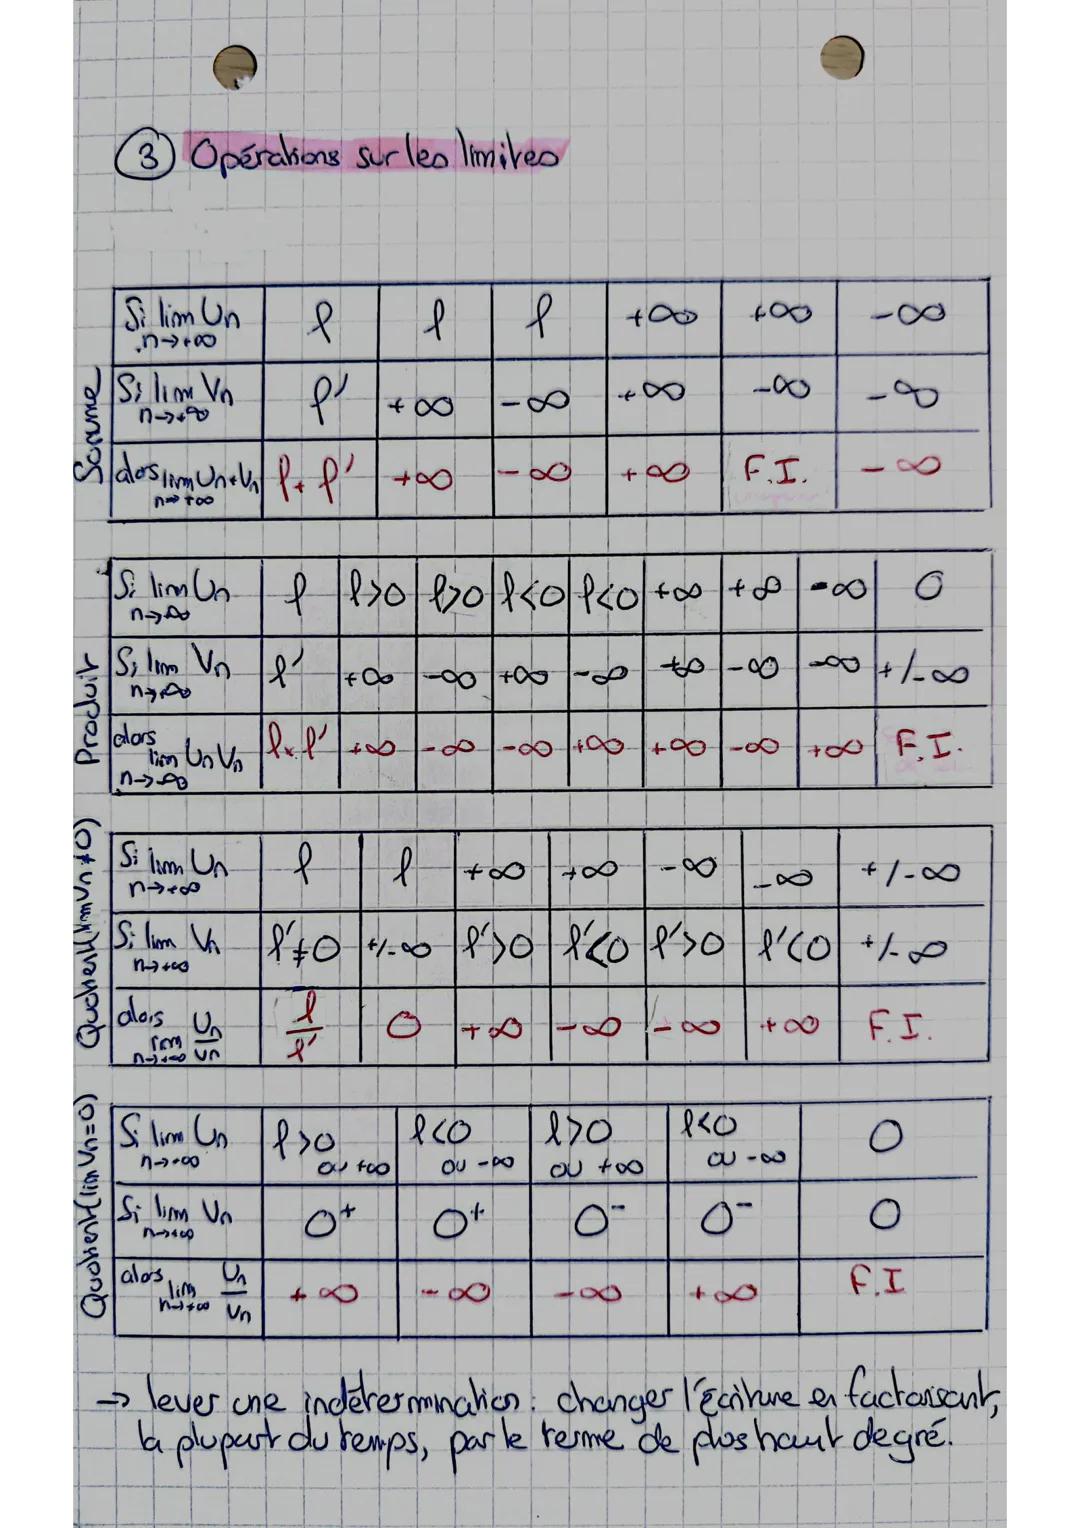 ③ Opérations sur les limites
Somme
Si lim Un n→+∞ | ℓ | ℓ | ℓ | +∞ | +∞ | -∞
Si lim Vn n→+∞ | ℓ' | +∞ | -∞ | +∞ | -∞ | -∞
alors lim Un+Vn n→+∞ | ℓ+ℓ' | +∞ | -∞ | +∞ | F.I. | -∞
Produit
Si lim Un n→∞ | ℓ | ℓ>0 | ℓ>0 | ℓ<0 | ℓ<0 | +∞ | +∞ | -∞ | 0
Si lim Vn n→∞ | ℓ' | +∞ | -∞ | +∞ | -∞ | +∞ | -∞ | -∞ | +/-∞
alors lim Un Vn n→∞ | ℓ×ℓ' | +∞ | -∞ | -∞ | +∞ | +∞ | -∞ | +∞ | F.I.
Quotient (lim Vn≠0)
Si lim Un n→+∞ | ℓ | ℓ | +∞ | +∞ | -∞ | -∞ | +/-∞
Si lim Vn n→+∞ | ℓ'≠0 | +/-∞ | ℓ'>0 | ℓ'<0 | ℓ'>0 | ℓ'<0 | +/-∞
alors lim Un/Vn n→+∞ | ℓ/ℓ' | 0 | +∞ | -∞ | -∞ | +∞ | F.I.
Quotient (lim Vn=0)
Si lim Un n→+∞ | ℓ>0 ou +∞ | ℓ<0 ou -∞ | ℓ>0 ou +∞ | ℓ<0 ou -∞ | 0
Si lim Vn n→+∞ | 0⁺ | 0⁺ | 0⁻ | 0⁻ | 0
alors lim Un/Vn n→+∞ | +∞ | -∞ | -∞ | +∞ | F.I
→ lever une indétermination : changer l'écriture en factorisant,
la plupart du temps, par le terme de plus haut degré.